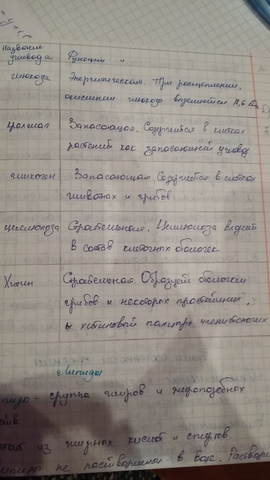 Название углевода Функции
глюкоза Энергетическая. При расщеплении,
окислении глюкозы выделяется 17,6 кДж
крахмал Запасающая. Содержится в клетках
растений как запасающий углевод
гликоген Запасающая. Содержится в клетках
животных и грибов.
целлюлоза Строительная. Целлюлоза входит
в состав клеточных оболочек
Хитин Строительная. Образует оболочки
грибов и некоторых простейших,
хитиновый членистоногих
Липиды
группа жиров и жироподобных
из жирных кислот и спирта
не растворимы в воде. Раствори